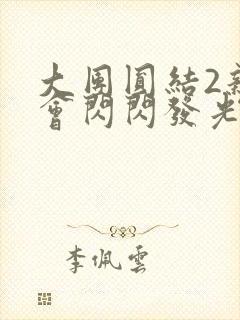 大團圓結2
會閃閃發光
李佩雲